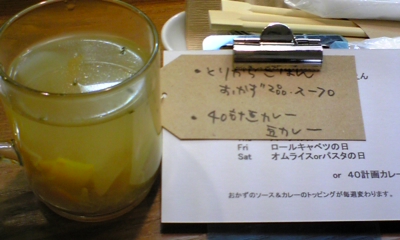 ・とりからごはん
おかず200.スープ70
・40計画カレー
豆カレー
Fri ロールキャベツの日
Sat オムライスorパスタの日
or 40計画カレー
おかずのソース＆カレーのトッピングが毎週変わります。